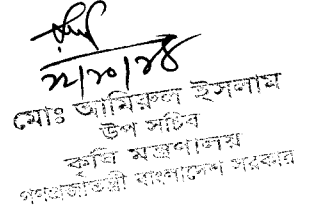 মোঃ আমিরুল ইসলাম
উপ সচিব
কৃষি মন্ত্রণালয়
গণপ্রজাতন্ত্রী বাংলাদেশ সরকার